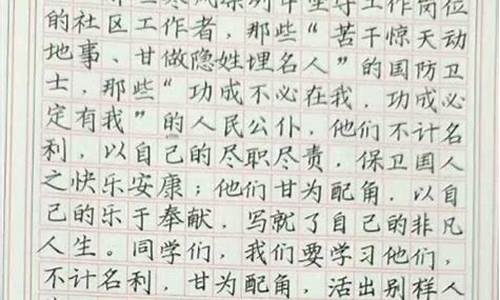 的社区工作者，那些“苦干惊天动
地事、甘做隐姓埋名人”的国防卫
士，那些“功成不必在我，功成必
定有我”的人民公仆，他们不计名
利，以自己的尽职尽责，保卫国人
之快乐安康；他们甘为配角，以自
己的乐于奉献，写就了自己的非凡
人生。同学们，我们要学习他们，
不计名利，甘为配角，活出别样人